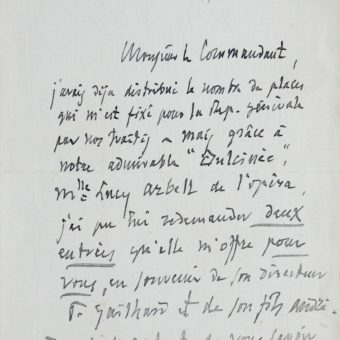 Monsieur le Commandant,
j'avais déjà distribué le nombre de places
qui m'est fixé pour la Rép. générale
par nos traités – mais, grâce à
notre admirable "Dulcinée",
Mlle Lucy Arbell de l'opéra,
j'ai pu lui redemander deux
entrées qu'elle m'offre pour
vous, en souvenir de son directeur
P. Gailhard et de son fils André.